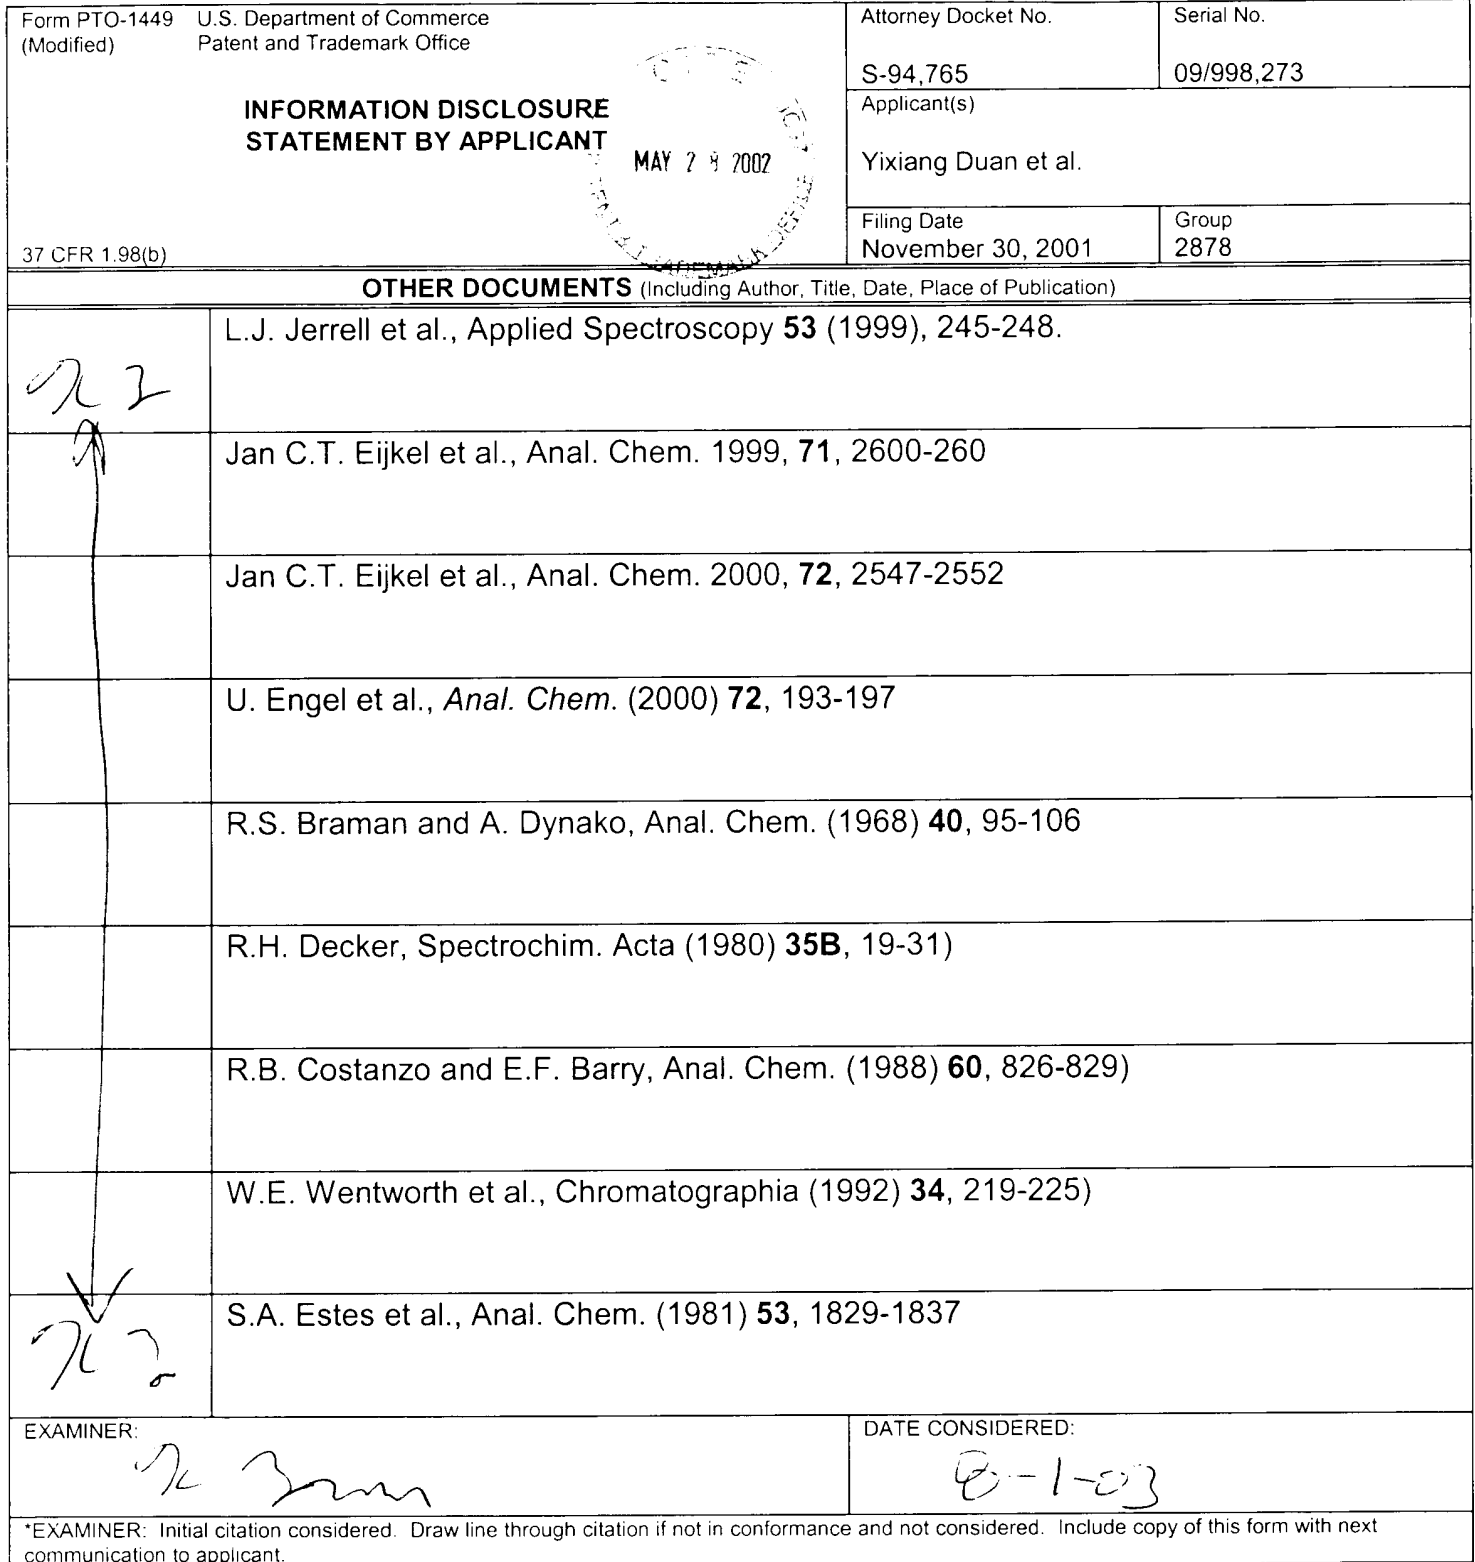 Form PTO-1449 U.S. Department of Commerce
(Modified) Patent and Trademark Office
INFORMATION DISCLOSURE
STATEMENT BY APPLICANT
37 CFR 1.98(b)
MAY 2 2002
Attorney Docket No.
S-94,765
Serial No.
09/998,273
Applicant(s)
Yixiang Duan et al.
Filing Date
November 30, 2001
Group
2878
OTHER DOCUMENTS (Including Author, Title, Date, Place of Publication)
L.J. Jerrell et al., Applied Spectroscopy 53 (1999), 245-248.
Jan C.T. Eijkel et al., Anal. Chem. 1999, 71, 2600-260
Jan C.T. Eijkel et al., Anal. Chem. 2000, 72, 2547-2552
U. Engel et al., Anal. Chem. (2000) 72, 193-197
R.S. Braman and A. Dynako, Anal. Chem. (1968) 40, 95-106
R.H. Decker, Spectrochim. Acta (1980) 35B, 19-31)
R.B. Costanzo and E.F. Barry, Anal. Chem. (1988) 60, 826-829)
W.E. Wentworth et al., Chromatographia (1992) 34, 219-225)
S.A. Estes et al., Anal. Chem. (1981) 53, 1829-1837
EXAMINER:
DATE CONSIDERED:
8-1-03
*EXAMINER: Initial citation considered. Draw line through citation if not in conformance and not considered. Include copy of this form with next
communication to applicant.